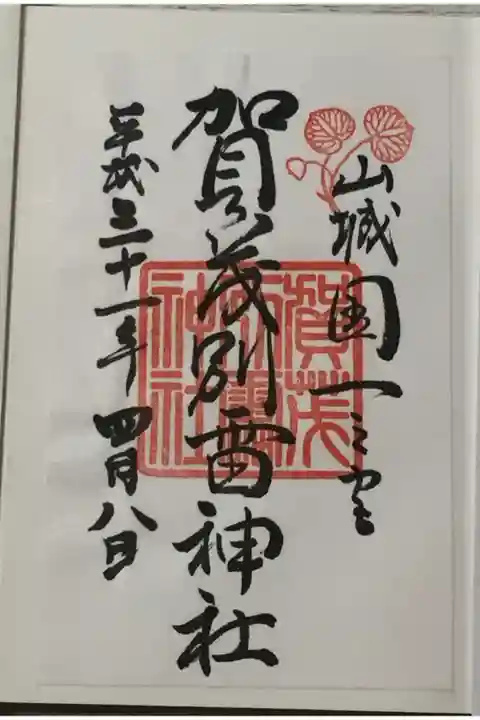 山城国一之宮
賀茂別雷神社
平成三十一年 四月八日
賀茂別雷神社